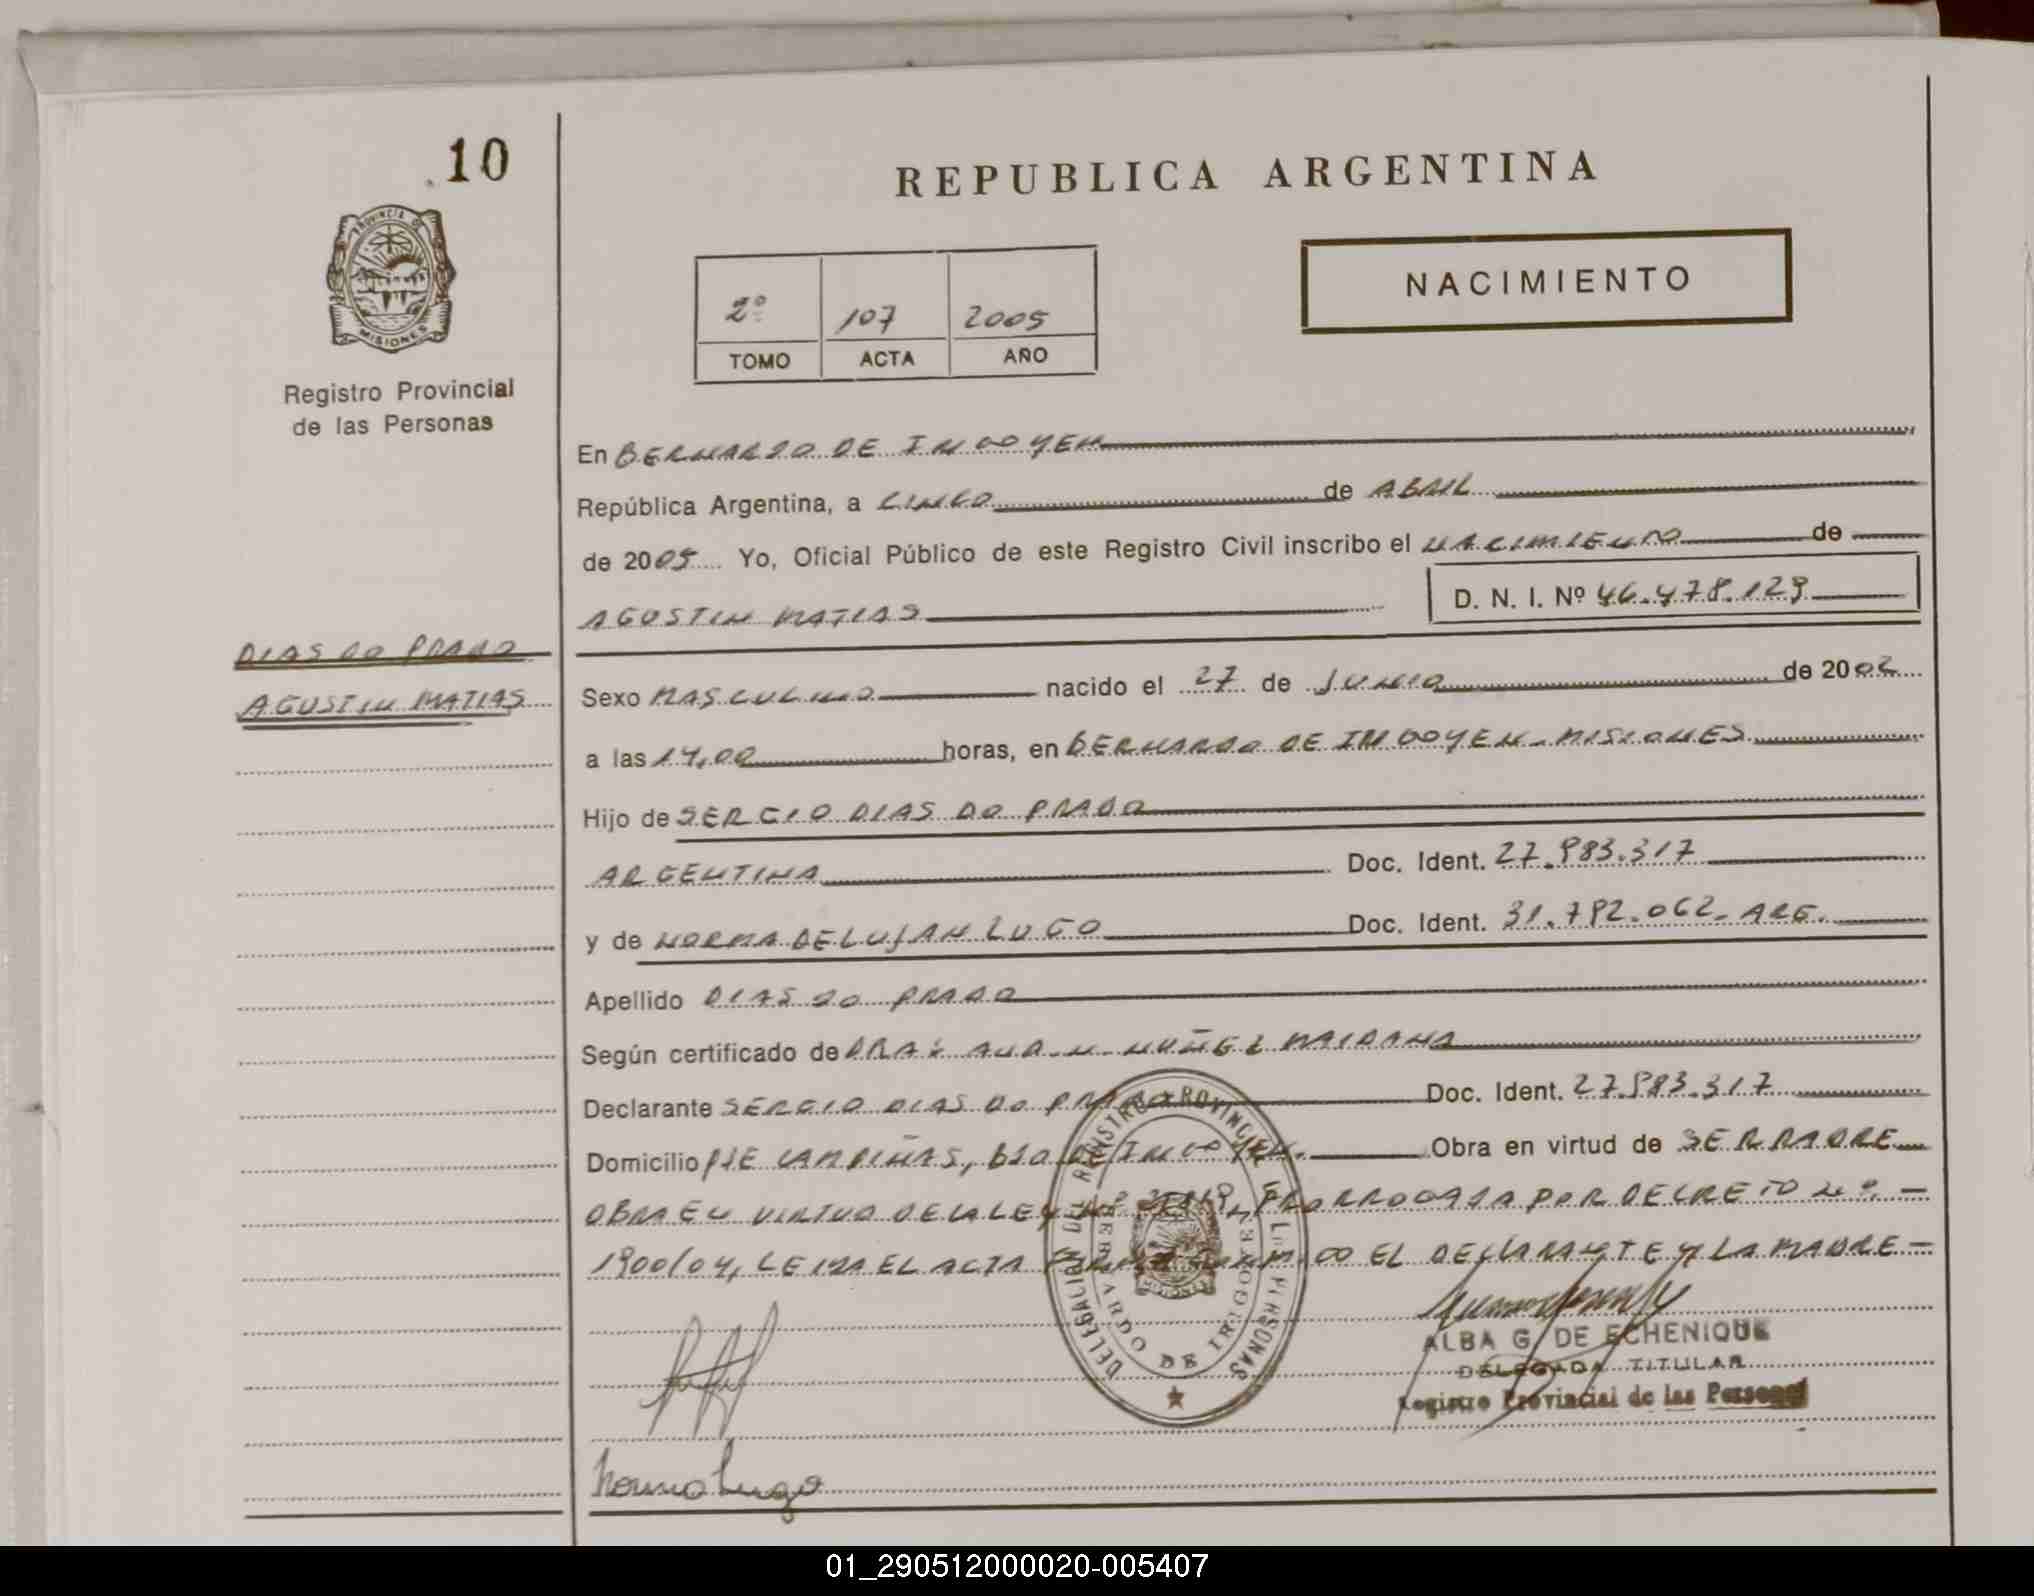 10
PROVINCIA DE
MISIONES
Registro Provincial
de las Personas
DIAS DO PRADO
AGUSTIN MATIAS
REPUBLICA ARGENTINA
NACIMIENTO
2º 107 2005
TOMO ACTA AÑO
En BERNARDO DE IRIGOYEN
República Argentina, a CINCO de ABRIL
de 2005 Yo, Oficial Público de este Registro Civil inscribo el NACIMIENTO de
AGUSTIN MATIAS D. N. I. Nº 46.478.129
Sexo MASCULINO nacido el 27 de JUNIO de 2002
a las 14,00 horas, en BERNARDO DE IRIGOYEN - MISIONES
Hijo de SERGIO DIAS DO PRADO
ARGENTINA Doc. Ident. 27.983.317
y de NORMA DE LUJAN LUGO Doc. Ident. 31.792.062 - ARG.
Apellido DIAS DO PRADO
Según certificado de DRA: ANA N. NUÑEZ MAIDANA
Declarante SERGIO DIAS DO PRADO Doc. Ident. 27.983.317
Domicilio PJE CAMPIÑAS, BDO DE IRIGOYEN. Obra en virtud de SER PADRE
OBRA EN VIRTUD DE LA LEY Nº PRORROGADA POR DECRETO Nº
1900/04, LEIDA EL ACTA EL DECLARANTE Y LA MADRE
DELEGACION DEL REGISTRO PROVINCIAL DE LAS PERSONAS
BERNARDO DE IRIGOYEN
ALBA G. DE ECHENIQUE
DELEGADA TITULAR
Registro Provincial de las Personas
Norma Lugo
01_290512000020-005407